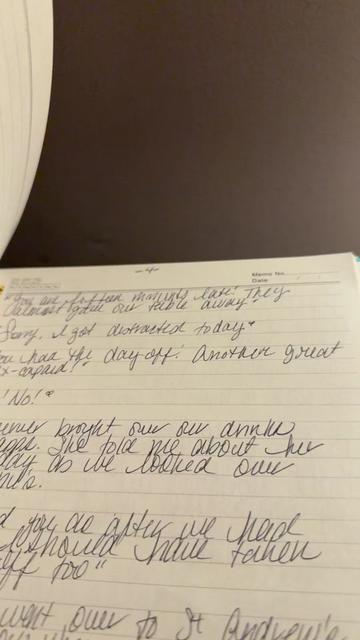 Memo No.
Date
"You are fifteen minutes late! They
almost gave our table away"
Sorry, I got distracted today"
ou had the day off! Another great
'No!"
brought over our drinks
She told me about her
day as we looked over
you do after we had
should have taken
off too"
went over to St Andrew's